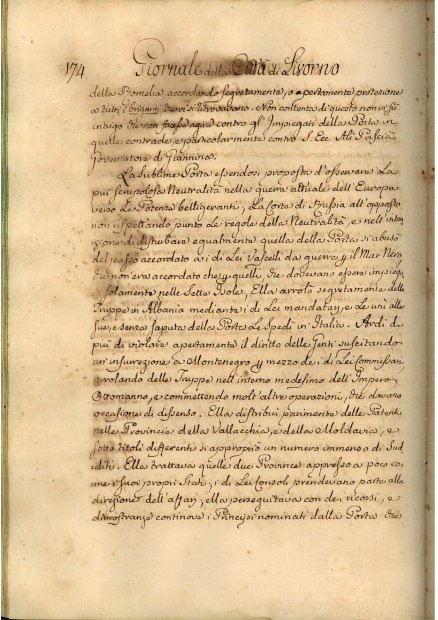 174 Giornale della Città di Livorno
della Romelia, accordando segretamente, o apertamente protezione
a tutti i briganti che vi si ritrovavano. Non contenta di questo non vi fù
intrigo che non facesse agire contro gl'Impiegati della Porta in
quelle contrade, e particolarmente contro S. Ecc. Alì Pascià
Governatore di Giannina.
La Sublime Porta essendosi proposta d'osservare La
più scrupolosa Neutralità nella guerra attuale dell'Europa
verso Le Potenze belligeranti, La Corte di Russia all'opposto
non rispettando punto Le regole della Neutralità, e nell'inten
zione di disturbare egualmente quella della Porta si abusò
del passo accordato ai di Lei Vascelli da guerra p il Mar Nero
che non era accordato che p quelli, che dovevano essere impiega
solamente nelle Sette Isole, Ella arrolò segretamente delle
Truppe in Albania mediante i di Lei mandatarj, e Le unì alle
sue, e senza saputa della Porta Le Spedì in Italia. Ardì di
più di violare apertamente il diritto delle Genti suscitando
un'insurrezione a Montenegro p mezzo de i di Lei Commissari
arrolando delle Truppe nell'interno medesimo dell'Impero
Ottomanno, e commettendo molt'altre operazioni, che davano
occasione di dissenso. Ella distribuì parimente delle Patenti
nelle Provincie della Vallacchia, e della Moldavia, e
sotto titoli differenti si appropriò un numero immenso di Sud
editi. Ella trattava quelle due Province appresso a poco co
me i suoi proprj Stati, i di Lei Consoli prendevano parte alla
direzione dell'affarj, ella perseguitava con dei ricorsi, e
dimostranze continove i Principi nominati dalla Porta che